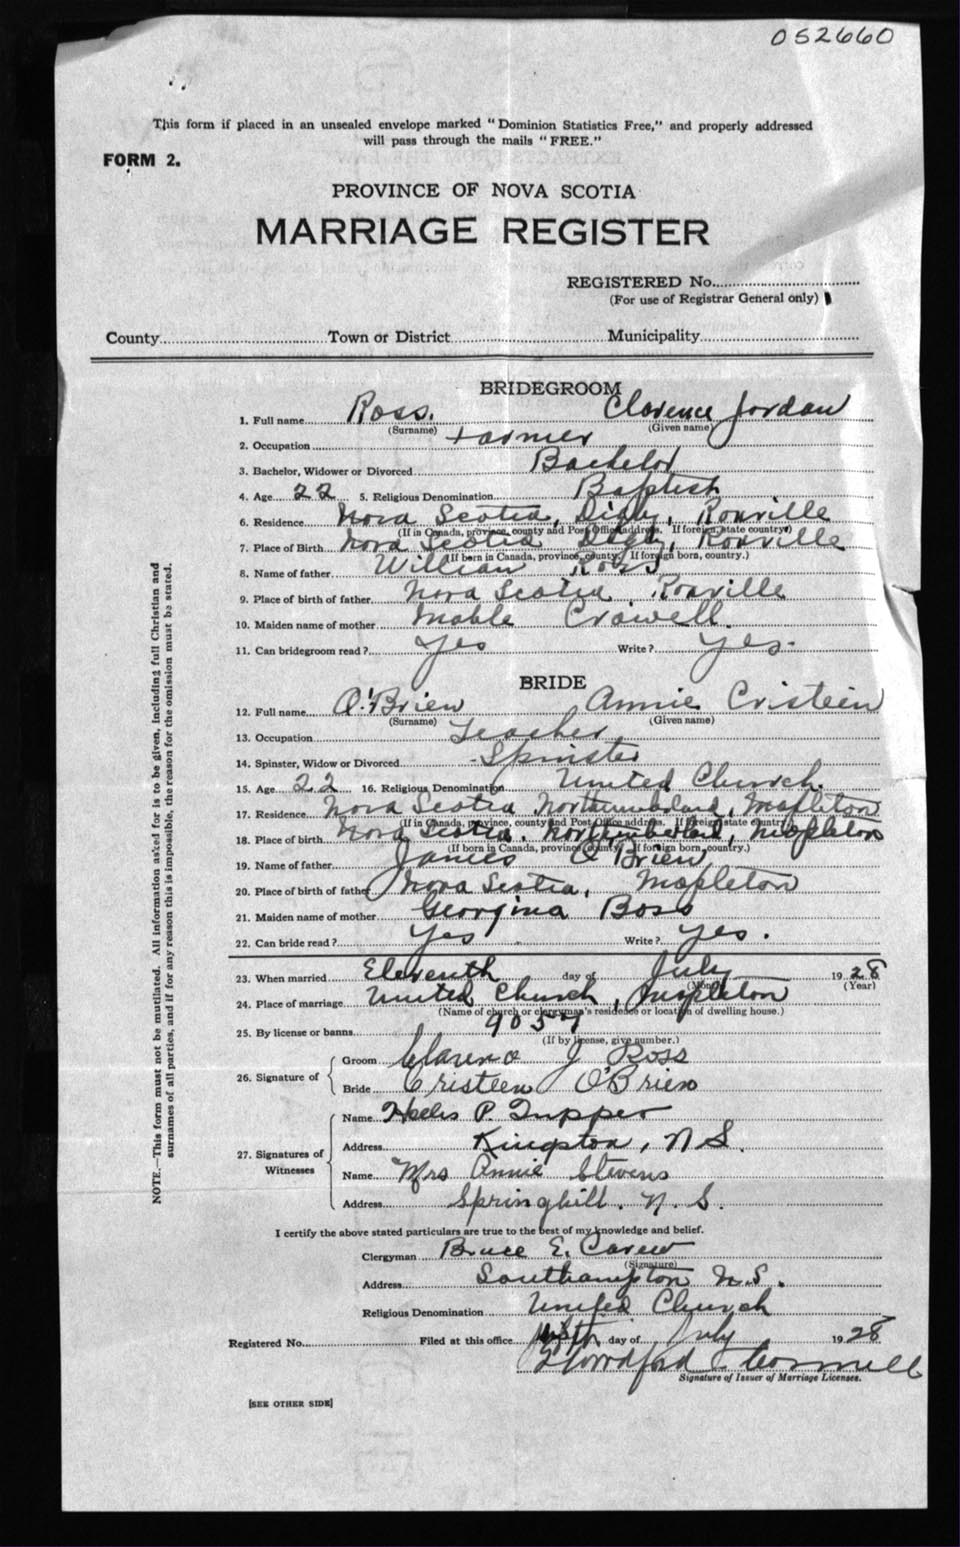 052660
This form if placed in an unsealed envelope marked "Dominion Statistics Free," and properly addressed
will pass through the mails "FREE."
FORM 2.
PROVINCE OF NOVA SCOTIA
MARRIAGE REGISTER
REGISTERED No.
(For use of Registrar General only)
County Town or District Municipality
BRIDEGROOM
1. Full name Ross. Clarence Jordan
(Surname) (Given name)
2. Occupation Farmer
3. Bachelor, Widower or Divorced Bachelor
4. Age 22 5. Religious Denomination Baptist
6. Residence Nova Scotia, Digby, Roxville
(If in Canada, province, county and Post Office address. If foreign, state country)
7. Place of Birth Nova Scotia Digby, Roxville
(If born in Canada, province, county. If foreign born, country.)
8. Name of father William Ross
9. Place of birth of father Nova Scotia, Roxville
10. Maiden name of mother Mable Crowell.
11. Can bridegroom read? Yes Write? Yes.
BRIDE
12. Full name O'Brien Annie Cristeen
(Surname) (Given name)
13. Occupation Teacher
14. Spinster, Widow or Divorced Spinster
15. Age 22 16. Religious Denomination United Church.
17. Residence Nova Scotia Northumberland, Mapleton
(If in Canada, province, county and Post Office address. If foreign state country)
18. Place of birth Nova Scotia. Northumberland, Mapleton
(If born in Canada, province, county. If foreign born, country.)
19. Name of father James O'Brien
20. Place of birth of father Nova Scotia, Mapleton
21. Maiden name of mother Georgina Boss
22. Can bride read? Yes Write? Yes.
23. When married Eleventh day of July 1928
(Month) (Year)
24. Place of marriage United Church, Mapleton
(Name of church or clergyman's residence or location of dwelling house.)
25. By license or banns 9057
(If by license, give number.)
26. Signature of Groom Clarence J Ross
Bride Cristeen O'Brien
27. Signatures of Witnesses Name P. Tupper
Address Kingston, N S.
Name Mrs Annie Stevens
Address Springhill. N. S.
I certify the above stated particulars are true to the best of my knowledge and belief.
Clergyman Bruce E. Carew
(Signature)
Address Southampton N.S.
Religious Denomination United Church
Registered No. Filed at this office day of July 1928
Signature of Issuer of Marriage Licenses.
[SEE OTHER SIDE]
NOTE.—This form must not be mutilated. All information asked for is to be given, including full Christian and
surnames of all parties, and if for any reason this is impossible, the reason for the omission must be stated.